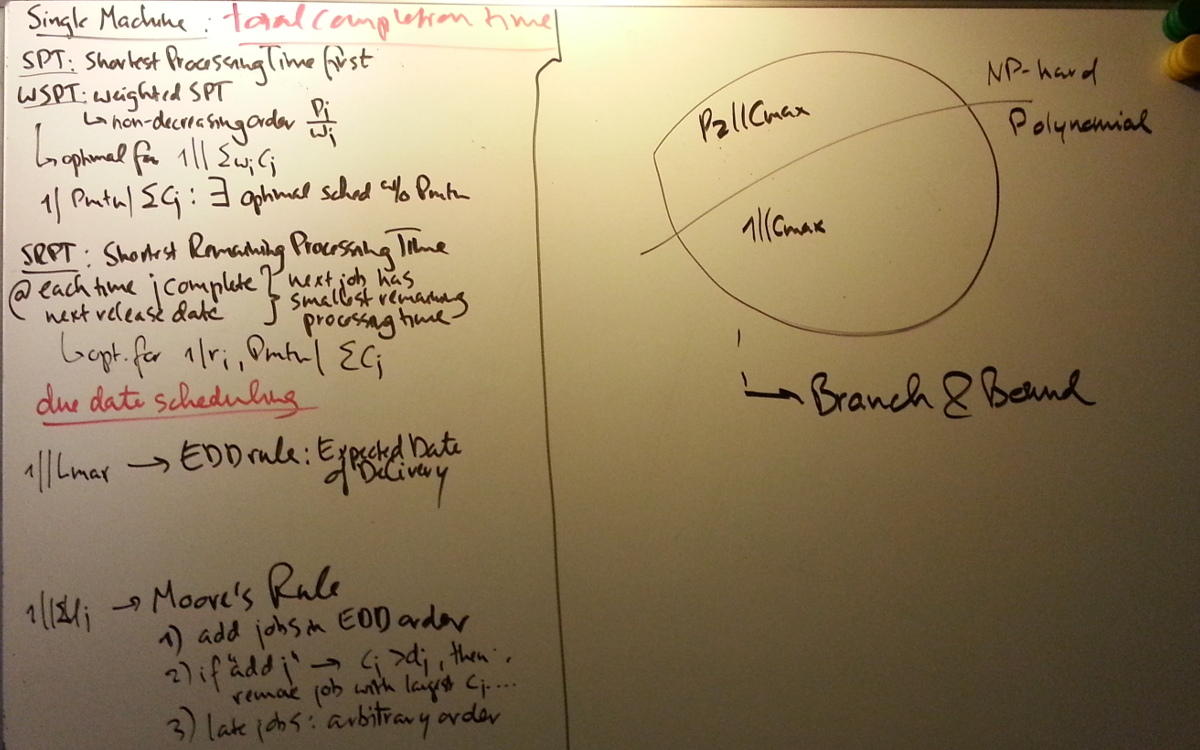 Single Machine: total completion time
SPT: Shortest Processing Time first
WSPT: weighted SPT
↳ non-decreasing order pj/wj
↳ optimal for 1|| ΣwjCj
1| Pmtn| ΣCj : ∃ optimal sched w/o Pmtn
SRPT: Shortest Remaining Processing Time
@ each time j complete } next job has
next release date } smallest remaining
processing time
↳ opt. for 1|rj, Pmtn| ΣCj
due date scheduling
1||Lmax → EDD rule: Expected Date
of Delivery
1||ΣUj → Moore's Rule
1) add jobs in EDD order
2) if "add j" → Cj > dj, then
remove job with largest Cj....
3) late jobs: arbitrary order
NP-hard
P2||Cmax
Polynomial
1||Cmax
↳ Branch & Bound